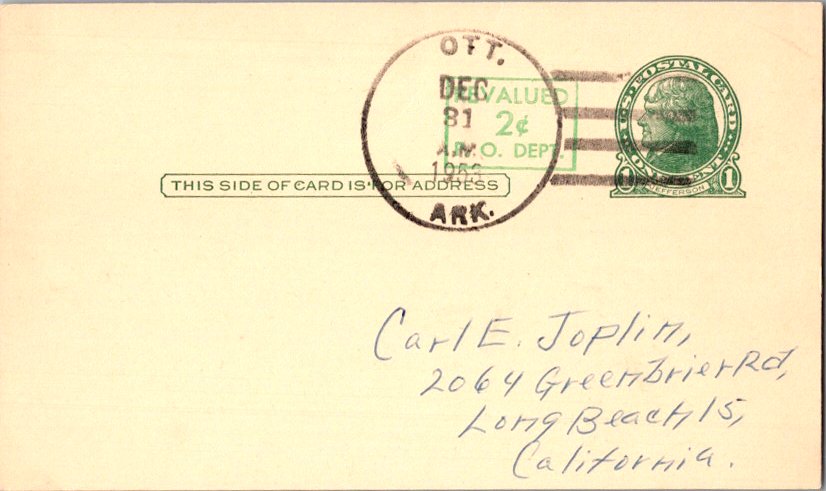 OTT.
DEC
31
A.M.
ARK.
REVALUED
2¢
P.O. DEPT.
U.S. POSTAL CARD
ONE CENT
1 JEFFERSON 1
THIS SIDE OF CARD IS FOR ADDRESS
Carl E. Joplin,
2064 Greenbrier Rd,
Long Beach 15,
California.